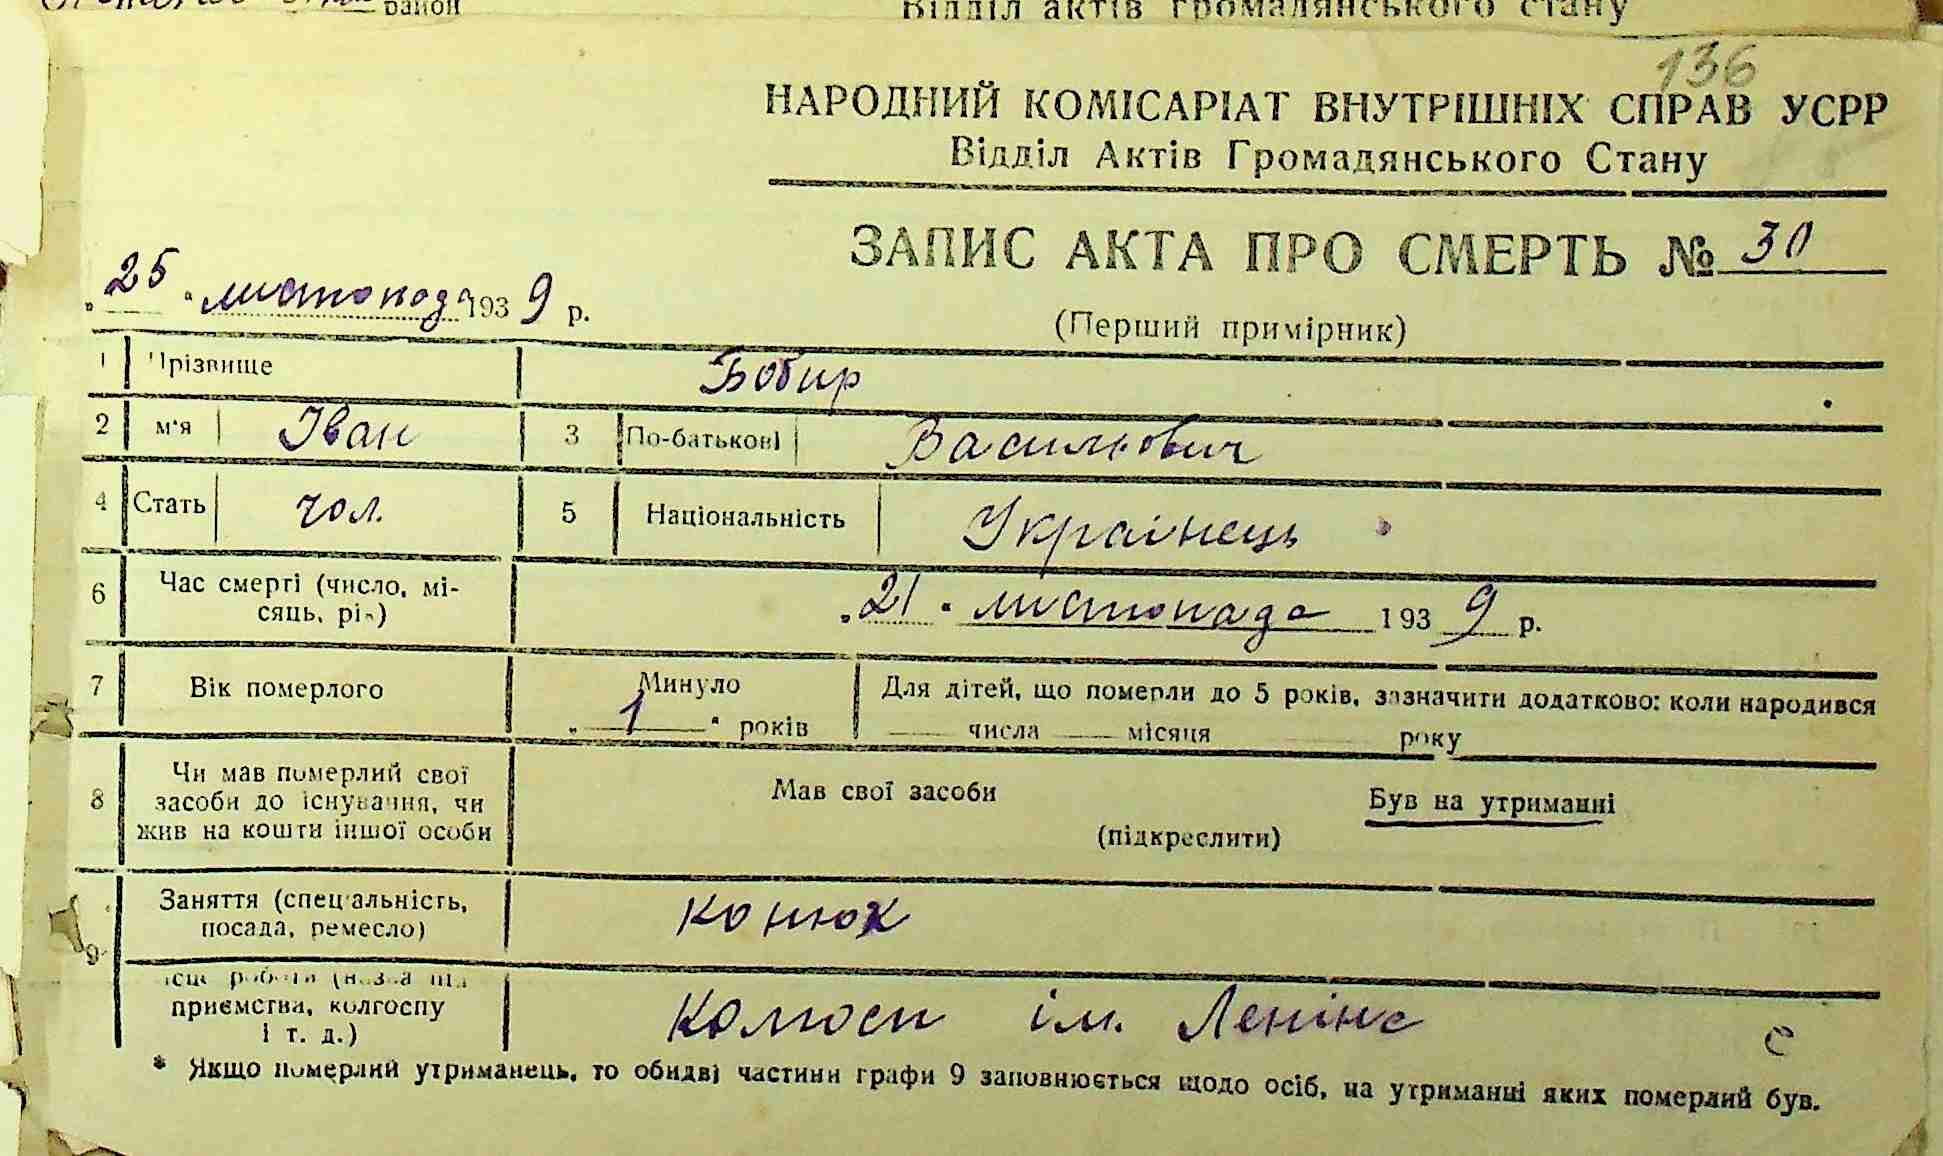 район
Відділ актів громадянського стану
136
НАРОДНИЙ КОМІСАРІАТ ВНУТРІШНІХ СПРАВ УСРР
Відділ Актів Громадянського Стану
ЗАПИС АКТА ПРО СМЕРТЬ № 30
„25“ листопада 1939 р.
(Перший примірник)
1 Прізвище Бобир
2 м'я Іван 3 По-батькові Васильович
4 Стать чол. 5 Національність Українець
6 Час смерті (число, мі-
сяць, рік) „21“ листопада 1939 р.
7 Вік померлого Минуло „1“ років Для дітей, що померли до 5 років, зазначити додатково: коли народився
числа місяця року
8 Чи мав померлий свої
засоби до існування, чи
жив на кошти іншої особи
Мав свої засоби Був на утриманні
(підкреслити)
9 Заняття (спеціальність,
посада, ремесло) конюх
ісце роботи (назва під
приємства, колгоспу
і т. д.) Колгосп ім. Леніна
* Якщо померлий утриманець, то обидві частини графи 9 заповнюється щодо осіб, на утриманні яких померлий був.